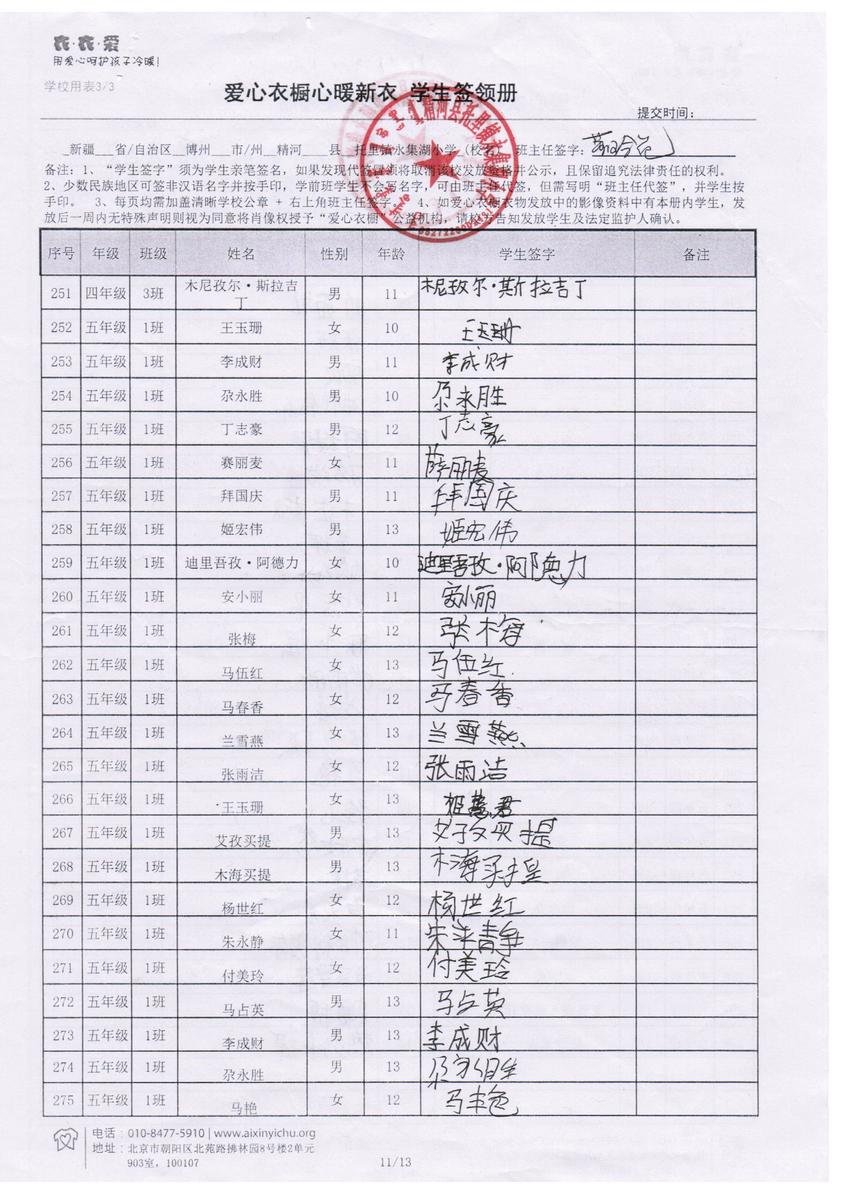 衣·衣·爱
用爱心呵护孩子冷暖!
学校用表3/3
爱心衣橱心暖新衣 学生签领册
提交时间:
新疆___省/自治区__博州__市/州__精河____县_托里镇永集湖小学(校名) 班主任签字:
备注: 1、“学生签字”须为学生亲笔签名,如果发现代签冒领将取消该校发放资格并公示,且保留追究法律责任的权利。
2、少数民族地区可签非汉语名字并按手印,学前班学生不会写名字,可由班主任代签,但需写明“班主任代签”,并学生按
手印。 3、每页均需加盖清晰学校公章 + 右上角班主任签字。 4、如爱心衣橱衣物发放中的影像资料中有本册内学生,发
放后一周内无特殊声明则视为同意将肖像权授予“爱心衣橱”公益机构,请校方告知发放学生及法定监护人确认。
序号 年级 班级 姓名 性别 年龄 学生签字 备注
251 四年级 3班 木尼孜尔·斯拉吉丁 男 11 木尼孜尔·斯拉吉丁
252 五年级 1班 王玉珊 女 10 王玉珊
253 五年级 1班 李成财 男 11 李成财
254 五年级 1班 尕永胜 男 10 尕永胜
255 五年级 1班 丁志豪 男 12 丁志豪
256 五年级 1班 赛丽麦 女 11
257 五年级 1班 拜国庆 男 11 拜国庆
258 五年级 1班 姬宏伟 男 13 姬宏伟
259 五年级 1班 迪里吾孜·阿德力 女 10 迪里吾孜·阿德力
260 五年级 1班 安小丽 女 11 安小丽
261 五年级 1班 张梅 女 12 张梅
262 五年级 1班 马伍红 女 13 马伍红
263 五年级 1班 马春香 女 12 马春香
264 五年级 1班 兰雪燕 女 13 兰雪燕
265 五年级 1班 张雨洁 女 12 张雨洁
266 五年级 1班 王玉珊 女 13
267 五年级 1班 艾孜买提 男 13 艾孜买提
268 五年级 1班 木海买提 男 13 木海买提
269 五年级 1班 杨世红 女 12 杨世红
270 五年级 1班 朱永静 女 11 朱永静
271 五年级 1班 付美玲 女 12 付美玲
272 五年级 1班 马占英 男 13 马占英
273 五年级 1班 李成财 男 13 李成财
274 五年级 1班 尕永胜 男 13 尕永胜
275 五年级 1班 马艳 女 12 马艳
电话:010-8477-5910 | www.aixinyichu.org
地址:北京市朝阳区北苑路拂林园8号楼2单元
903室,100107
11/13